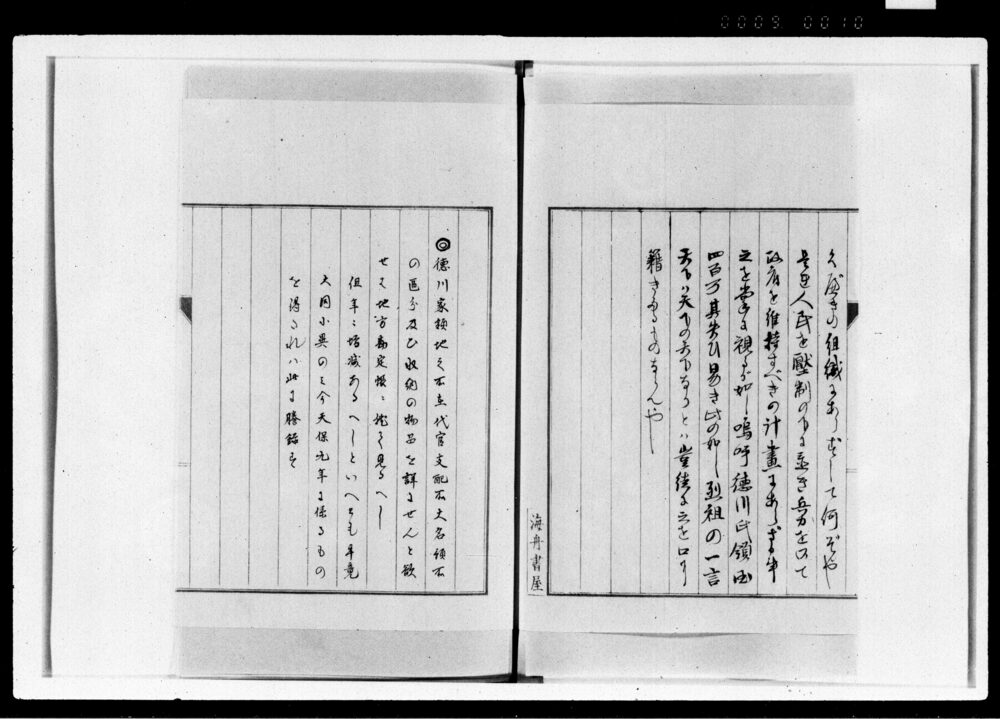 0009 0010
の組織にあらすして何そや
是迄人民を壓制の下に置き兵力を以て
政府を維持すべきの計畫にあらざる
之を掌に視るが如し嗚呼徳川氏鎖國
四百万其失ひ易き此の如し烈祖の一言
天下ハ天下の天下なりとハ豈徒に之を口に
籍きたるものならんや
海舟書屋
◎徳川家領地之不立代官支配所大名領所
の區分及ひ収納の物品を詳にせんと欲
せは地方勘定帳に就て見るへし
但年々増減あるへしといへとも畢竟
大同小異のミ今天保元年に係るもの
を得されハ此に謄録す